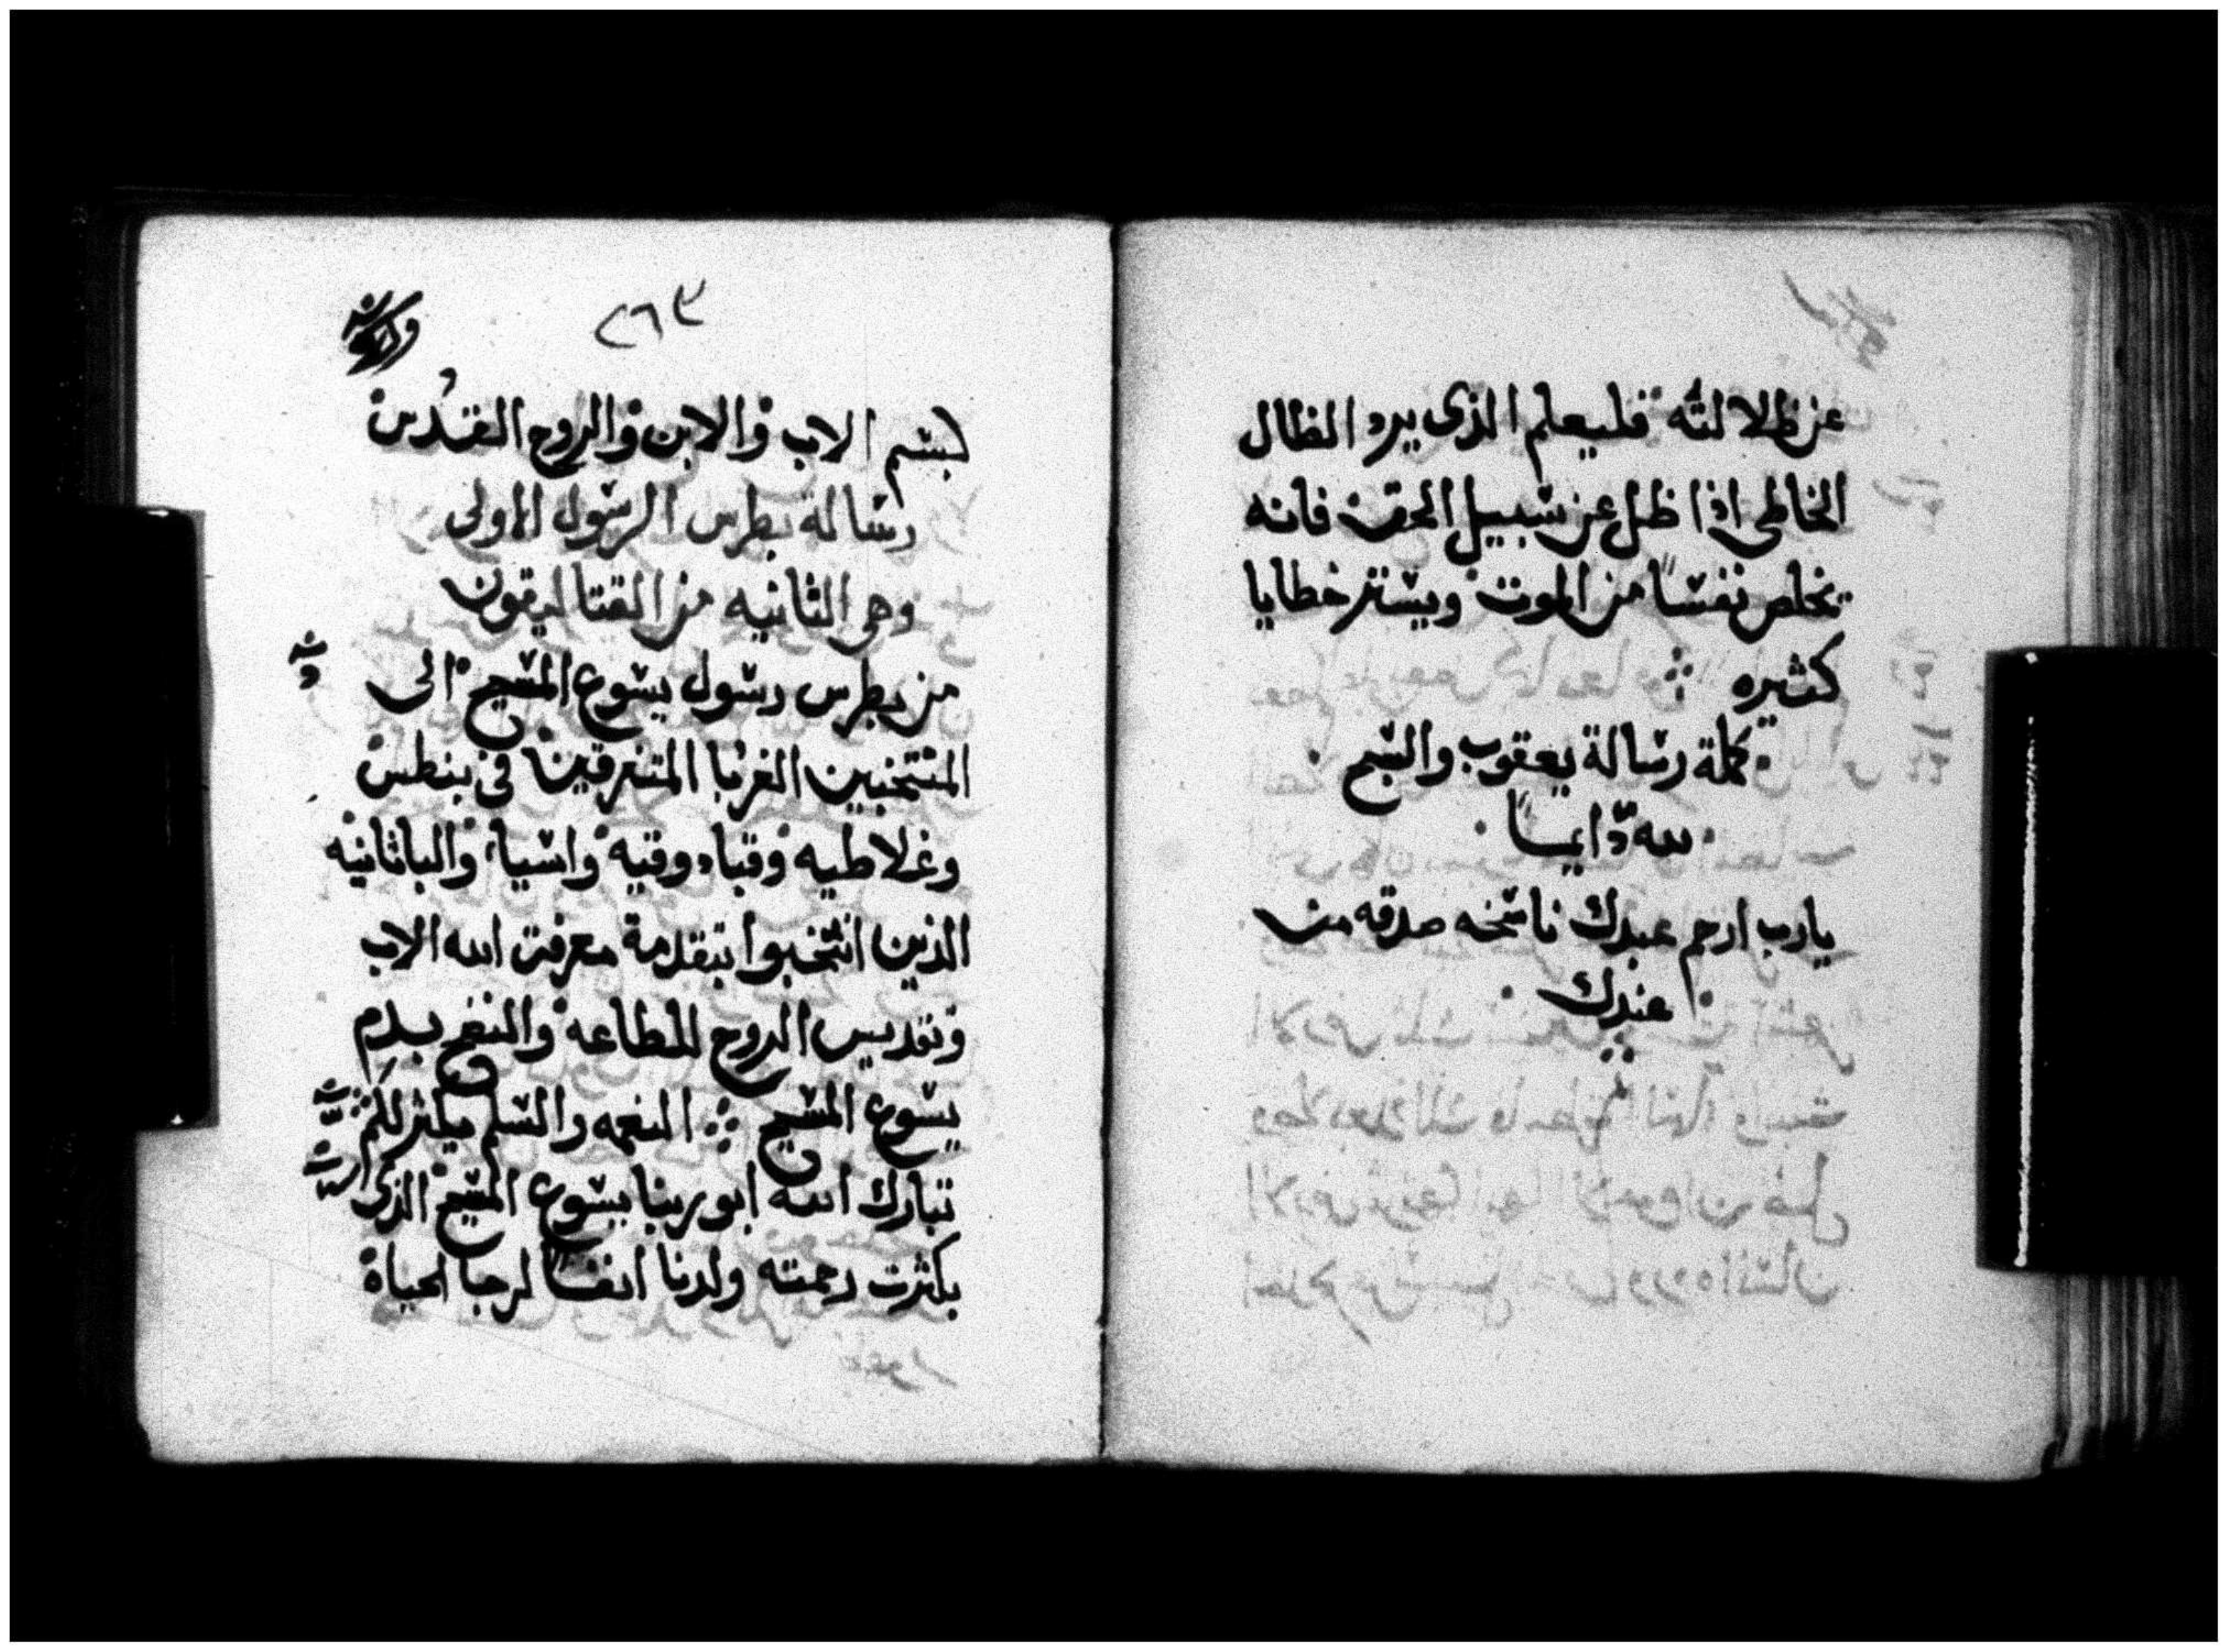 عن ظلالته فليعلم الذى يرد الظال
الخاطى اذا ظل عن سبيل الحق فانه
يخلص نفسًا من الموت ويستر خطايا
كثيره
كملة رسالة يعقوب والسبح
لله دّايمًا
يارب ارحم عبدك ناسخه صدقه من
عندك
٢٦٣
بسم الاب والابن والروح القدس
رسالة بطرس الرسول الاولى
وهى الثانيه من القتاليقون
من بطرس رسول يسوع المسيح الى
المنتخبين الغربا المتفرقين فى بنطس
وغلاطيه وقبادوقيه واسيا والباثانيه
الذين انتخبوا بتقدمة معرفت الله الاب
وتقديس الروح للطاعه والنضح بدم
يسوع المسيح النعمه والسلم ميكثر لكم
تبارك الله ابو ربنا يسوع المسيح الذى
بكثرت رحمته ولدنا ايضًا لرجا الحياة